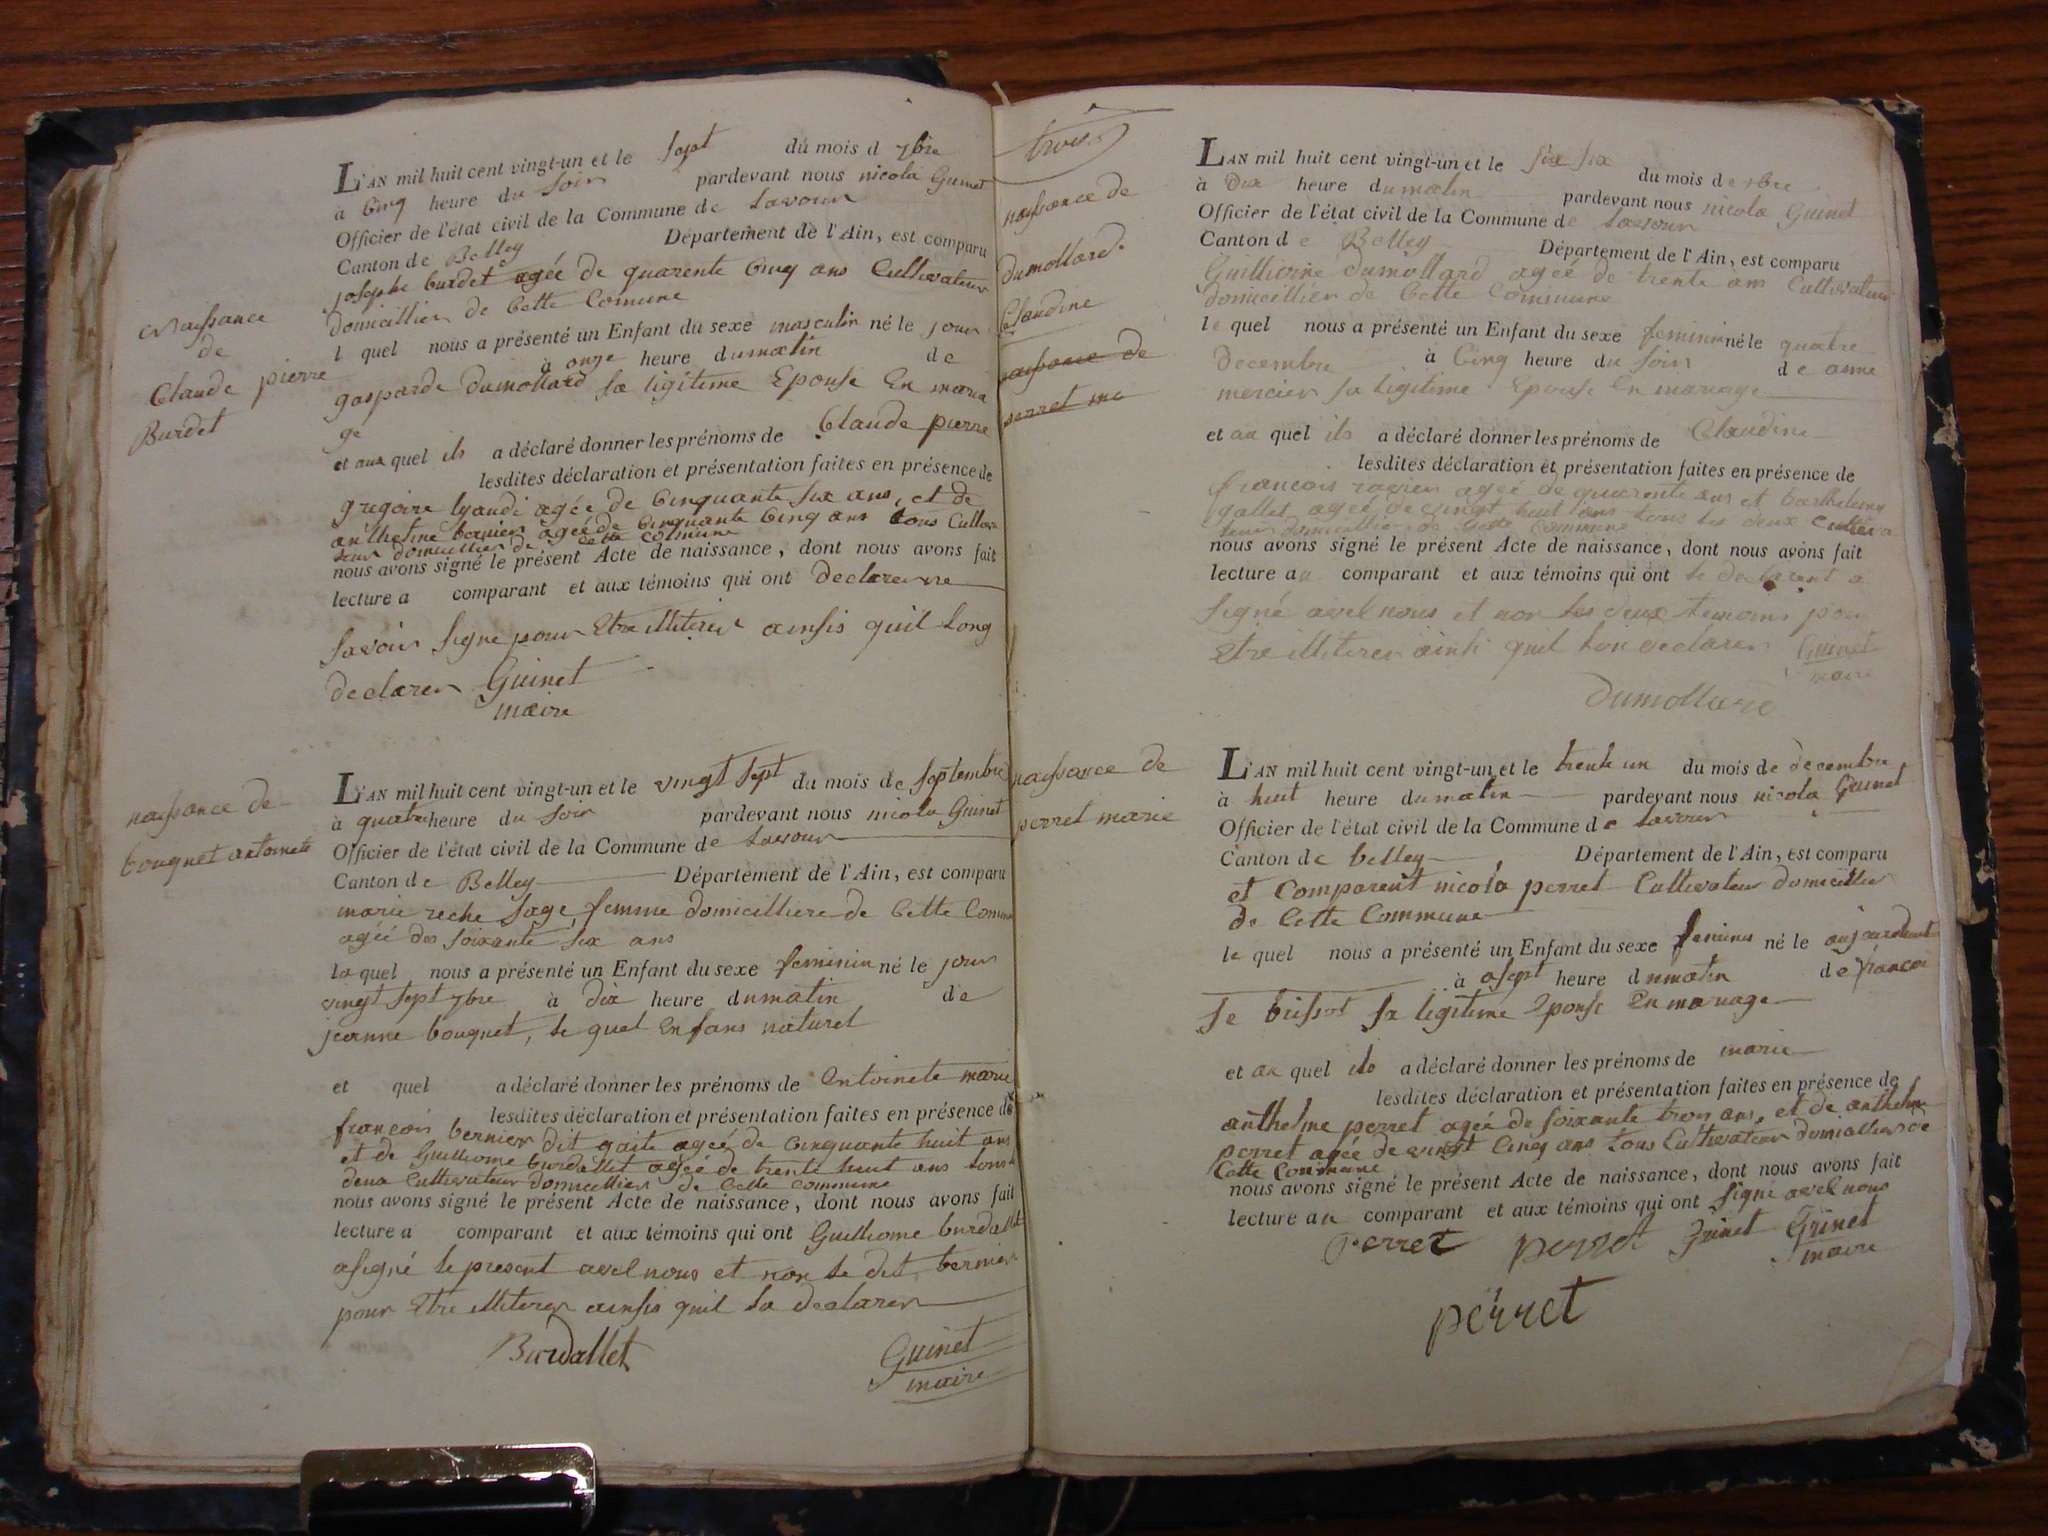 L'AN mil huit cent vingt-un et le sept du mois d 7bre
à cinq heure du soir pardevant nous nicola Guinet
Officier de l'état civil de la Commune de Lavour
Canton de Belley Département de l'Ain, est comparu
josephe burdet agée de quarente cinq ans Cultivateur
domicillier de Cette Comune
l quel nous a présenté un Enfant du sexe masculin né le jour
à onze heure du matin de
gasparde dumollard sa ligitime Epouse En maria
ge
et aux quel ils a déclaré donner les prénoms de Claude pierre
lesdites déclaration et présentation faites en présence de
gregoire lyaudi agée de cinquante six ans, et de
anthelme bernier agée de cinquante cinq ans tous Cultiva
teur domicillier de cette commune
nous avons signé le présent Acte de naissance, dont nous avons fait
lecture a comparant et aux témoins qui ont declarer ne
savoir signe pour Etre illiterer ainsis quil long
declarer Guinet
maire
Naissance
de
Claude pierre
Burdet
L'AN mil huit cent vingt-un et le vingt sept du mois de septembre
à quatre heure du soir pardevant nous nicola Guinet
Officier de l'état civil de la Commune de Lavour
Canton de Belley Département de l'Ain, est comparu
marie reche sage femme domicilliere de Cette Comune
agée des soixante six ans
la quel nous a présenté un Enfant du sexe feminin né le jour
vingt sept 7bre à dix heure du matin de
jeanne bouquet, le quel Enfans naturel
et quel a déclaré donner les prénoms de Entoinete marie
lesdites déclaration et présentation faites en présence de
françois bernier dit gaite agée de cinquante huit ans
et de Guilliome burdallet agée de trente huit ans tous
deux Cultivateur domicillier de Cette commune
nous avons signé le présent Acte de naissance, dont nous avons fait
lecture a comparant et aux témoins qui ont Guilliome burdallet
asigné le present avel nous et non le dit bernier
pour Etre illiterer ainsis quil la declarer
Burdallet Guinet
maire
naissance de
bouquet antoinete
trois
naissance de
dumollard
Claudine
naissance de
perret ma
L'AN mil huit cent vingt-un et le six six du mois de xbre
à dix heure du matin pardevant nous nicola Guinet
Officier de l'état civil de la Commune de Lavour
Canton de Belley Département de l'Ain, est comparu
Guilliome dumollard agée de trente ans Cultivateur
domicillier de Cette Commune
le quel nous a présenté un Enfant du sexe feminin né le quatre
decembre à Cinq heure du soir de anne
mercier sa ligitime Epouse En mariage
et au quel ils a déclaré donner les prénoms de Claudine
lesdites déclaration et présentation faites en présence de
francois ravier agée de quarente ans et barthelemy
gallet agée de vingt huit ans tous les deux cultiva
teur domicillier de Cette Commune
nous avons signé le présent Acte de naissance, dont nous avons fait
lecture au comparant et aux témoins qui ont le declarent a
signé avel nous et non les deux temoins pour
Etre illiterer ainsi quil lon declarer Guinet
maire
dumollard
naissance de
perret marie
L'AN mil huit cent vingt-un et le trente un du mois de decembre
à huit heure du matin pardevant nous nicola Guinet
Officier de l'état civil de la Commune de Lavour
Canton de belley Département de l'Ain, est comparu
et Comparent nicola perret Cultivateur domicillier
de Cette Commune
le quel nous a présenté un Enfant du sexe feminin né le aujourdhui
à sept heure du matin de françoi
se brissot sa legitime Epouse En mariage
et au quel ils a déclaré donner les prénoms de marie
lesdites déclaration et présentation faites en présence de
anthelme perret agée de soixante trois ans, et de anthelme
perret agée de vingt Cinq ans tous Cultivateur domicillier de
Cette Commune
nous avons signé le présent Acte de naissance, dont nous avons fait
lecture au comparant et aux témoins qui ont signé avel nous
Perret perret Guinet Guinet
maire
perret